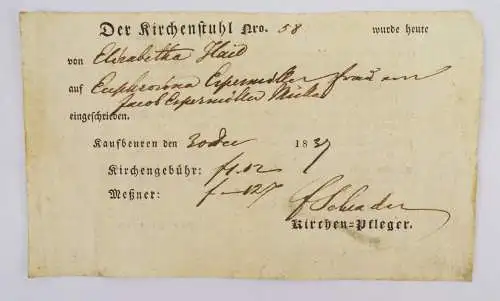 Der Kirchenstuhl Nro. 58 wurde heute
von Elisabetha Haid
auf Euphrosina Espermüller
Jacob Espermüller
eingeschrieben.
Kaufbeuren den 30 Dec 1837
Kirchengebühr: f 1.12
Meßner: f – 12 x
Schrader
Kirchen-Pfleger.